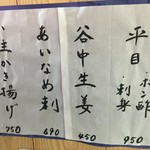 平目 ポン酢
刺身
950
谷中生姜
450
あいなめ刺
690
生かき揚げ
750